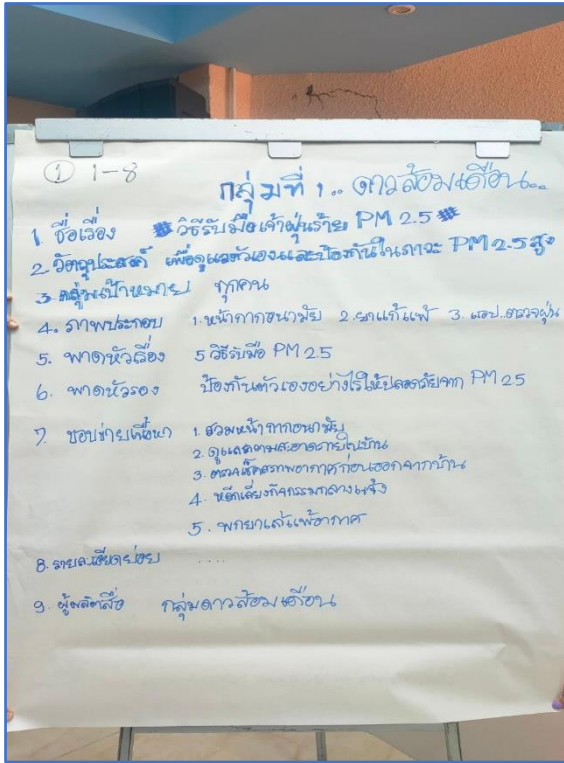 ① 1-8
กลุ่มที่ 1.. ดาวล้อมเดือน..
1. ชื่อเรื่อง # วิธีรับมือเจ้าฝุ่นร้าย PM 2.5 #
2. วัตถุประสงค์ เพื่อดูแลตัวเองและป้องกันในภาวะ PM 2.5 สูง
3. กลุ่มเป้าหมาย ทุกคน
4. ภาพประกอบ 1. หน้ากากอนามัย 2. ยาแก้แพ้ 3. แอป.ตรวจฝุ่น
5. พาดหัวเรื่อง 5 วิธีรับมือ PM 2.5
6. พาดหัวรอง ป้องกันตัวเองอย่างไรให้ปลอดภัยจาก PM 2.5
7. ขอบข่ายเนื้อหา 1. สวมหน้ากากอนามัย
2. ดูแลความสะอาดภายในบ้าน
3. ตรวจเช็คสภาพอากาศก่อนออกจากบ้าน
4. หลีกเลี่ยงกิจกรรมกลางแจ้ง
5. พกยาแก้แพ้อากาศ
8. รายละเอียดย่อย ....
9. ผู้ผลิตสื่อ กลุ่มดาวล้อมเดือน